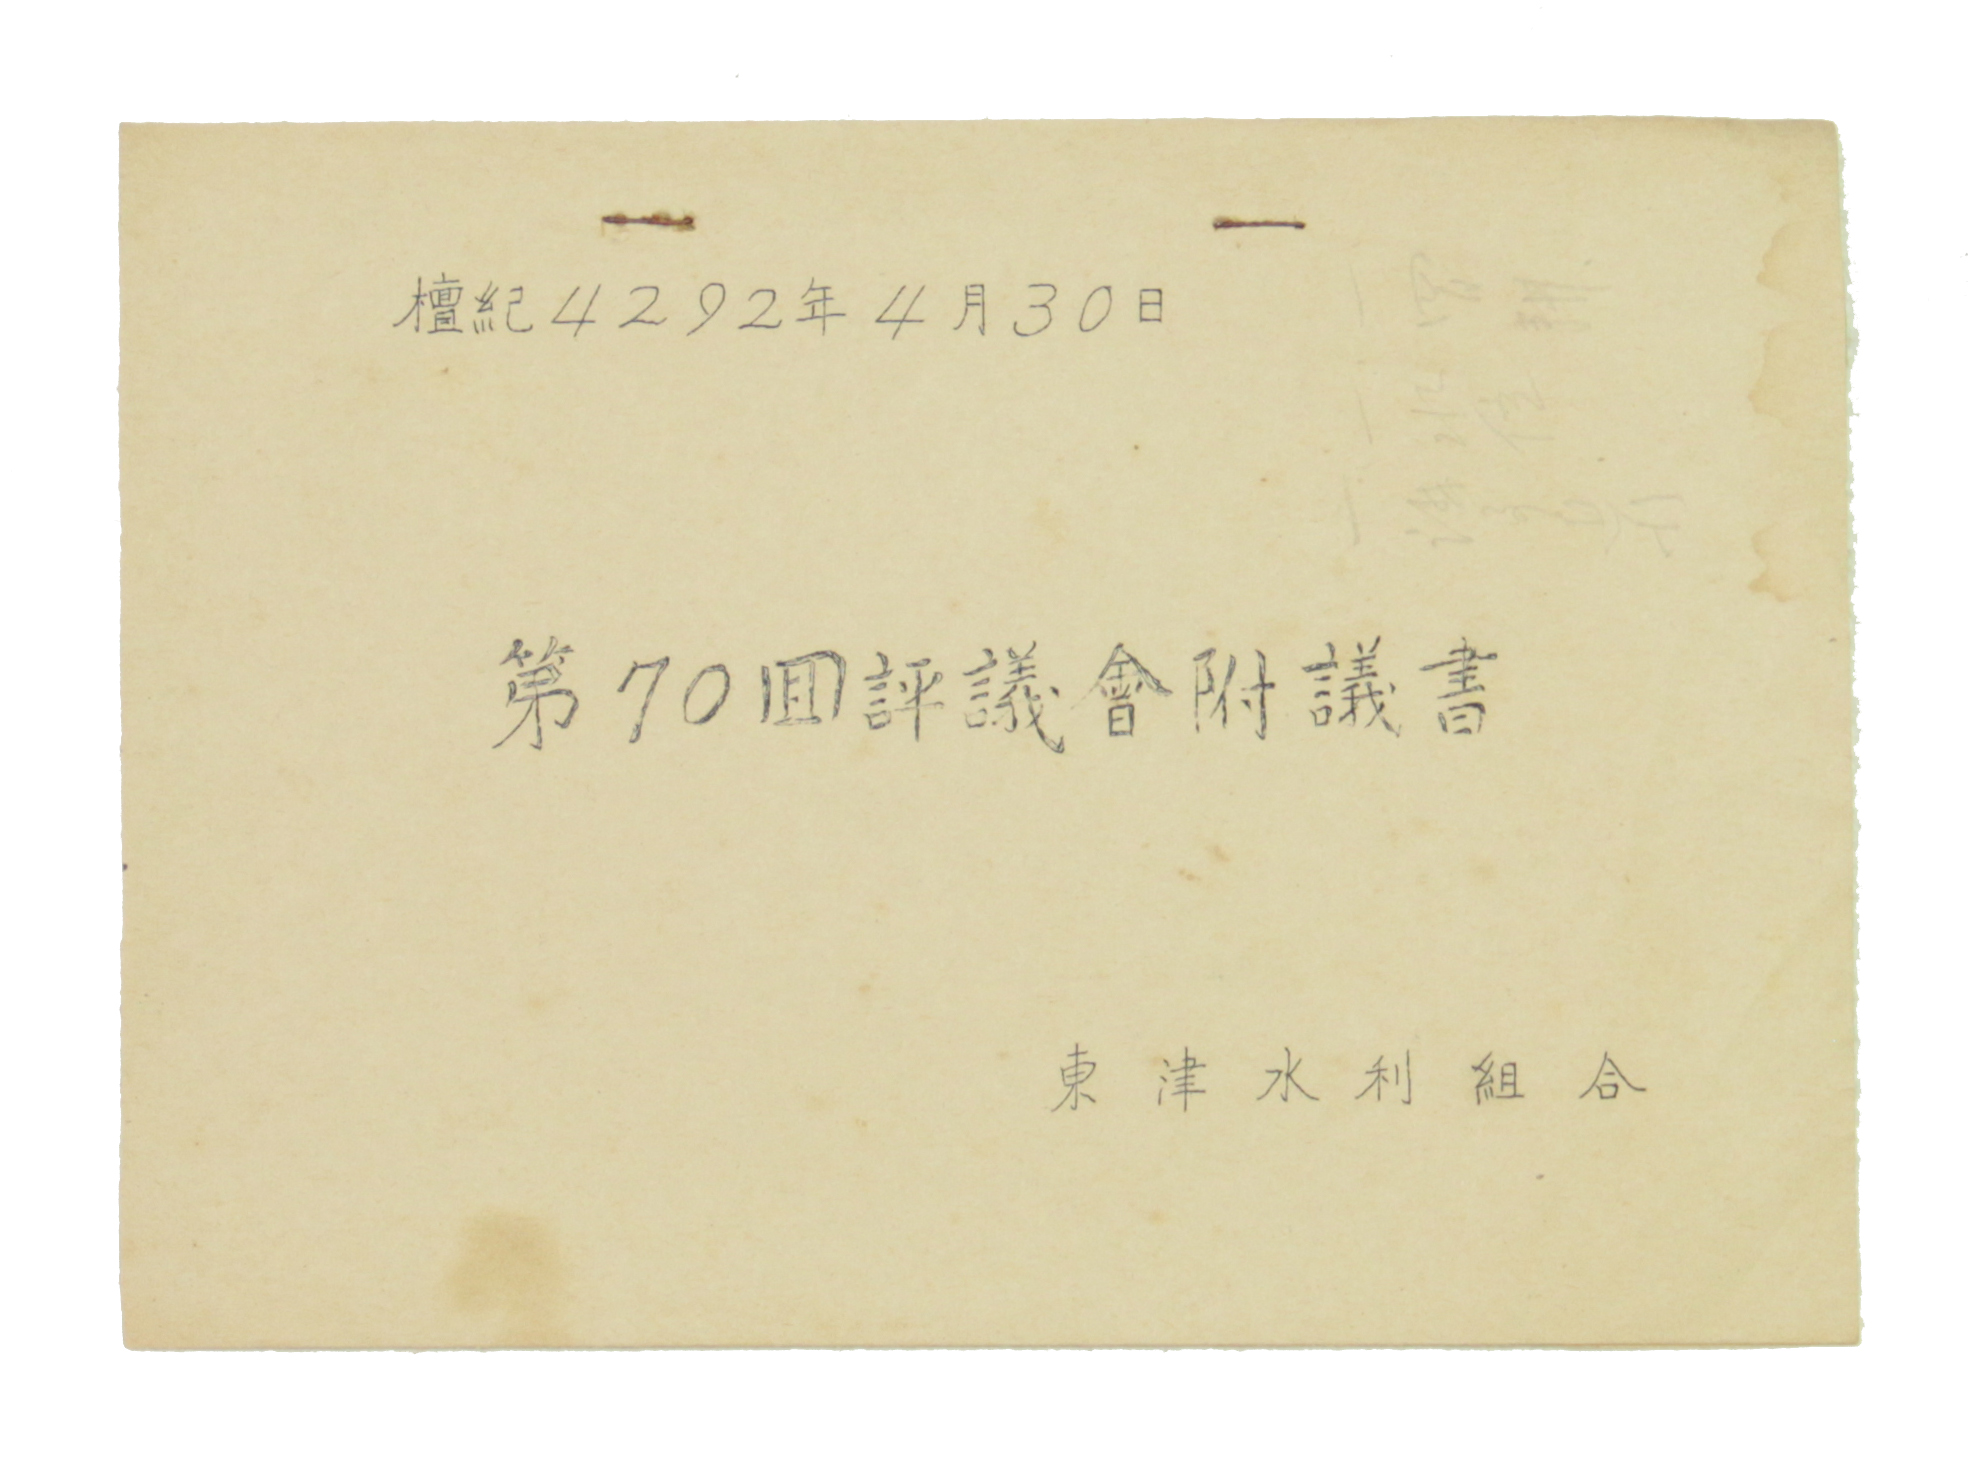 檀紀4292年4月30日
第70回評議會附議書
東津水利組合